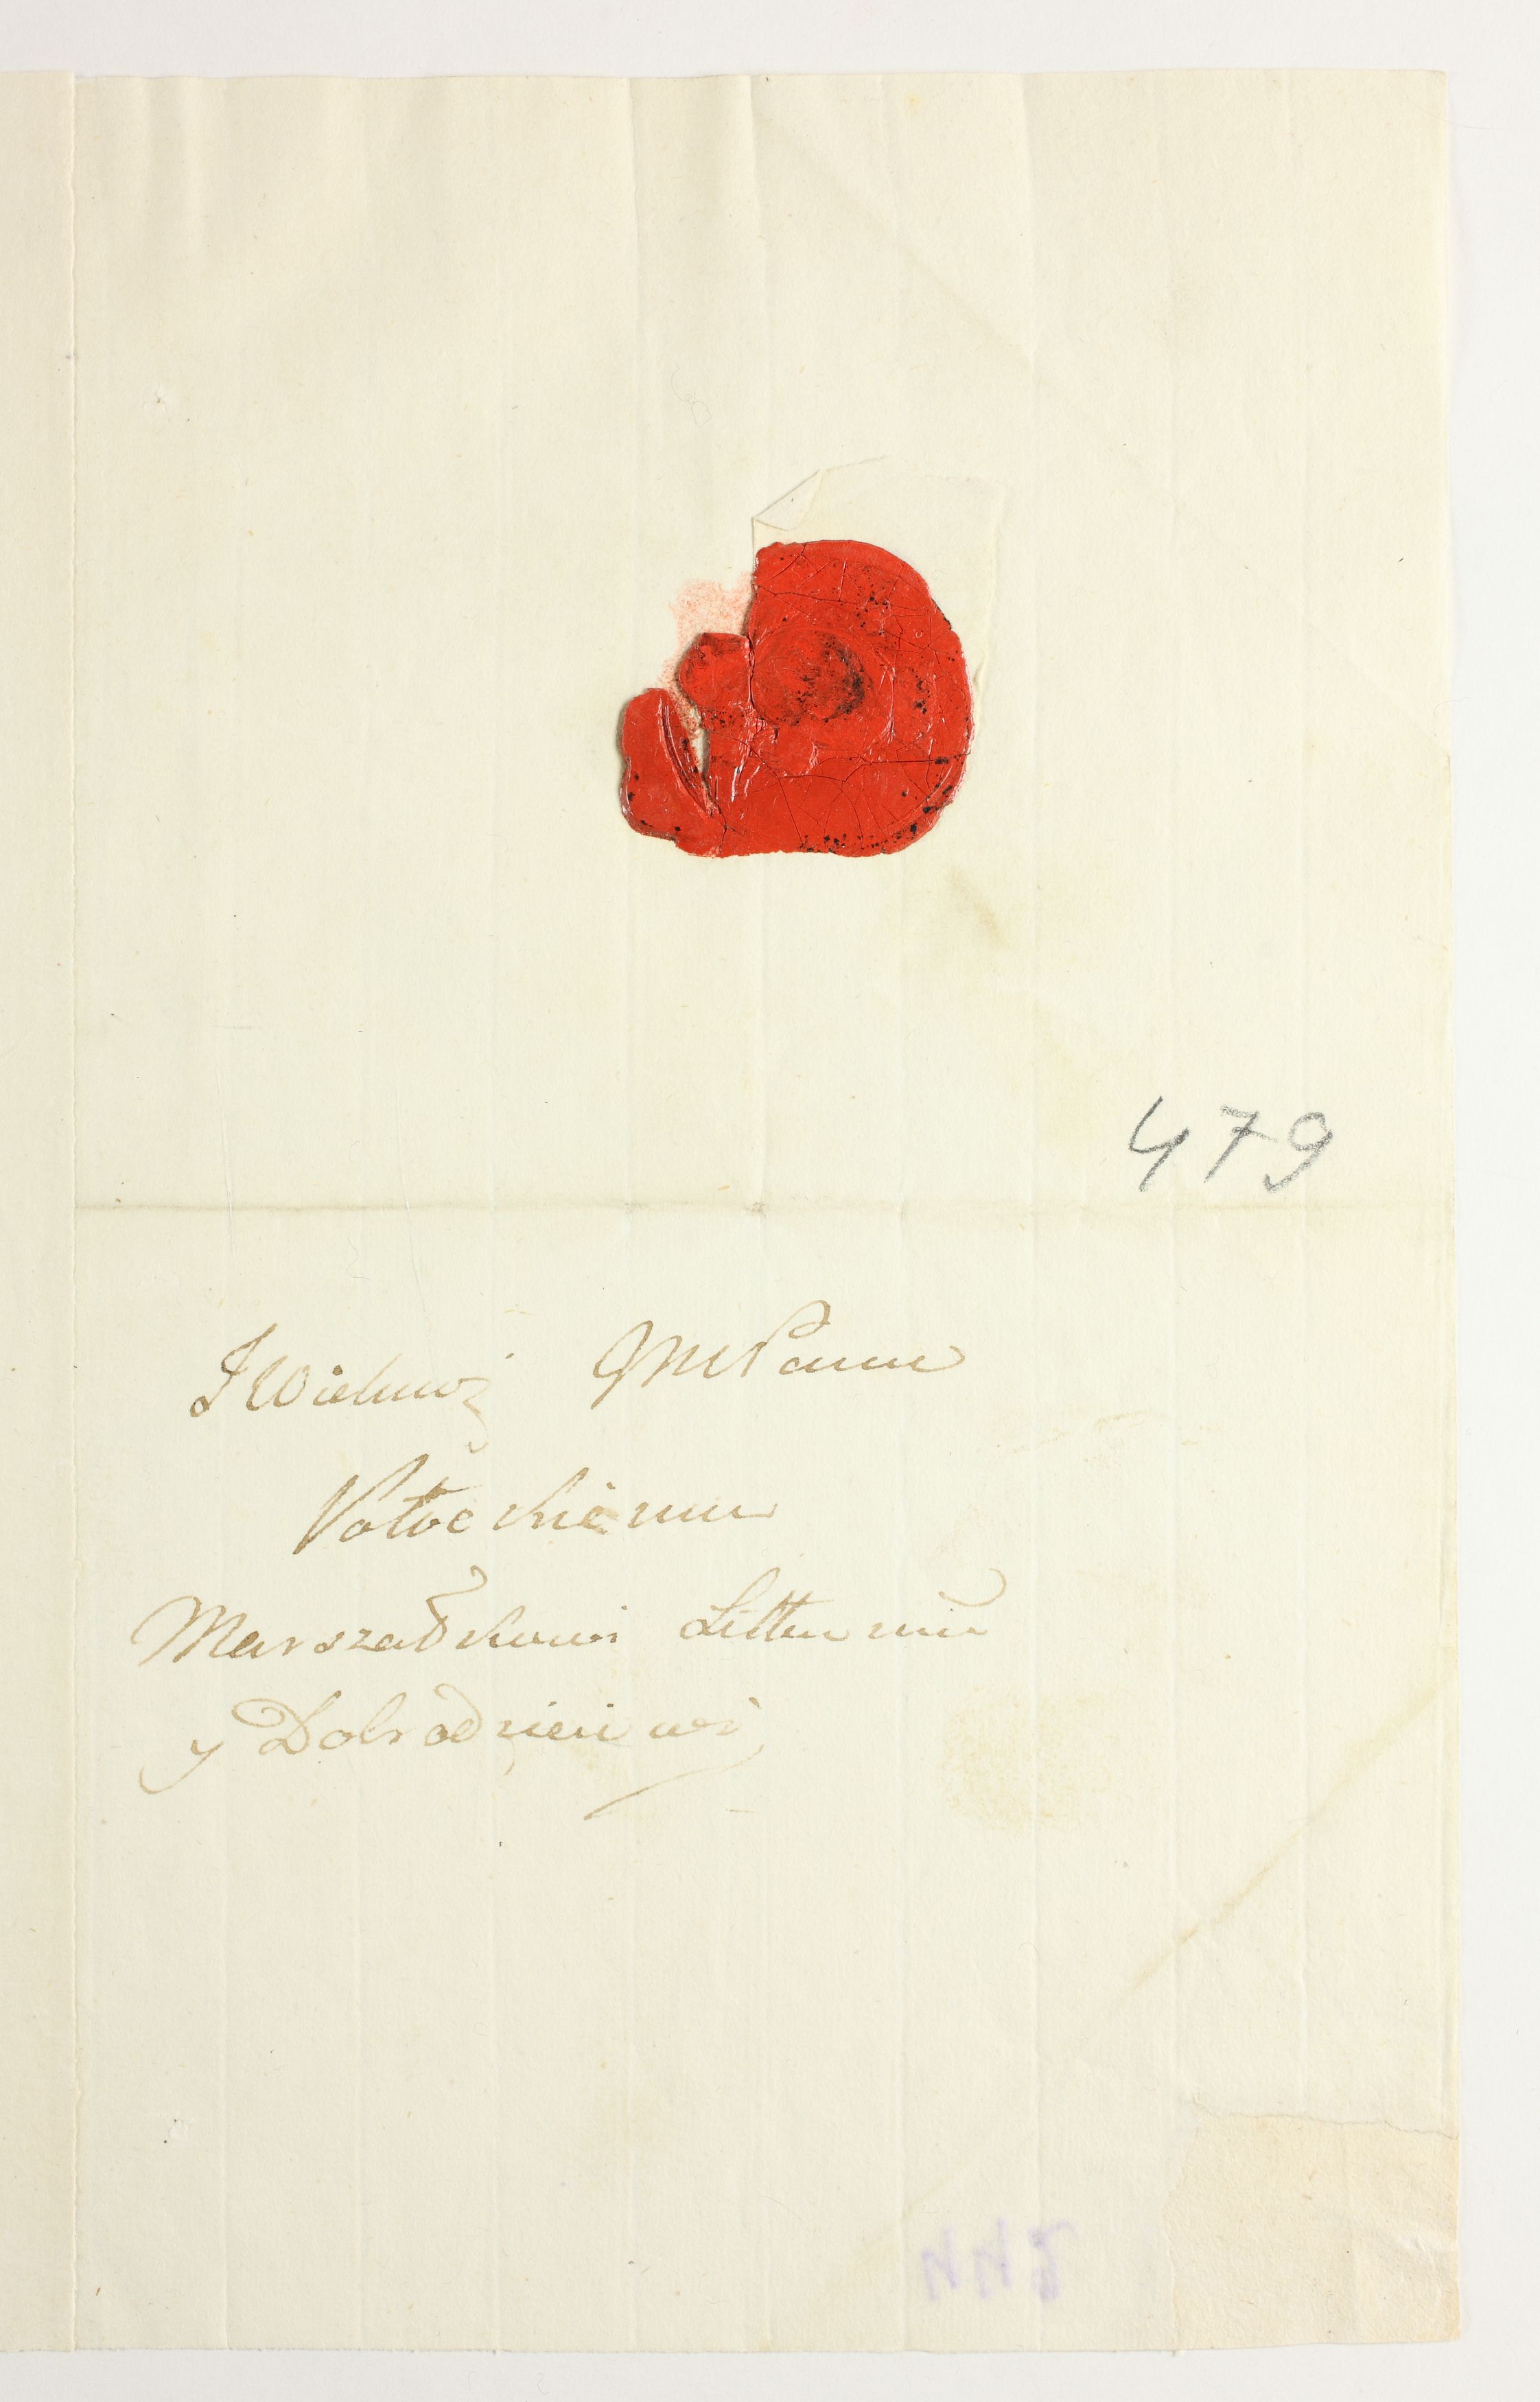 479
JWielmoż JMPanu
Potockiemu
Marszałkowi Littmu
y Dobrodzieiowi